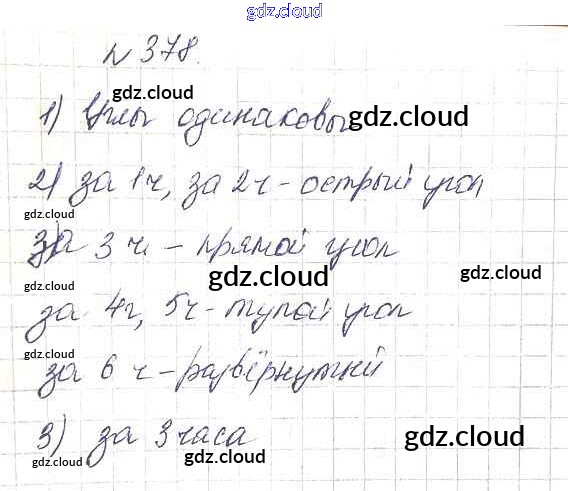 gdz.cloud
N 378.
gdz.cloud
1) Углы одинаковы
gdz.cloud
2) за 1ч, за 2ч - острый угол
gdz.cloud
за 3 ч - прямой угол
gdz.cloud
gdz.cloud
gdz.cloud
за 4ч, 5ч - тупой угол
gdz.cloud
за 6 ч - развёрнутый
3) за 3 часа
gdz.cloud
gdz.cloud